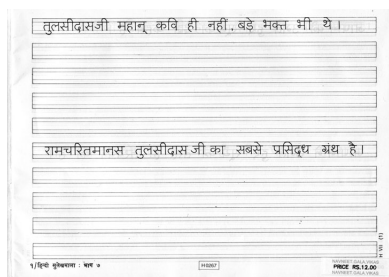 तुलसीदासजी महान् कवि ही नहीं, बड़े भक्त भी थे।
रामचरितमानस तुलसीदासजी का सबसे प्रसिद्ध ग्रंथ है।
१/हिन्दी सुलेखमाला : भाग ७
H0267
NAVNEET-GALA VIKAS
PRICE RS.12.00
NAVNEET-GALA VIKAS